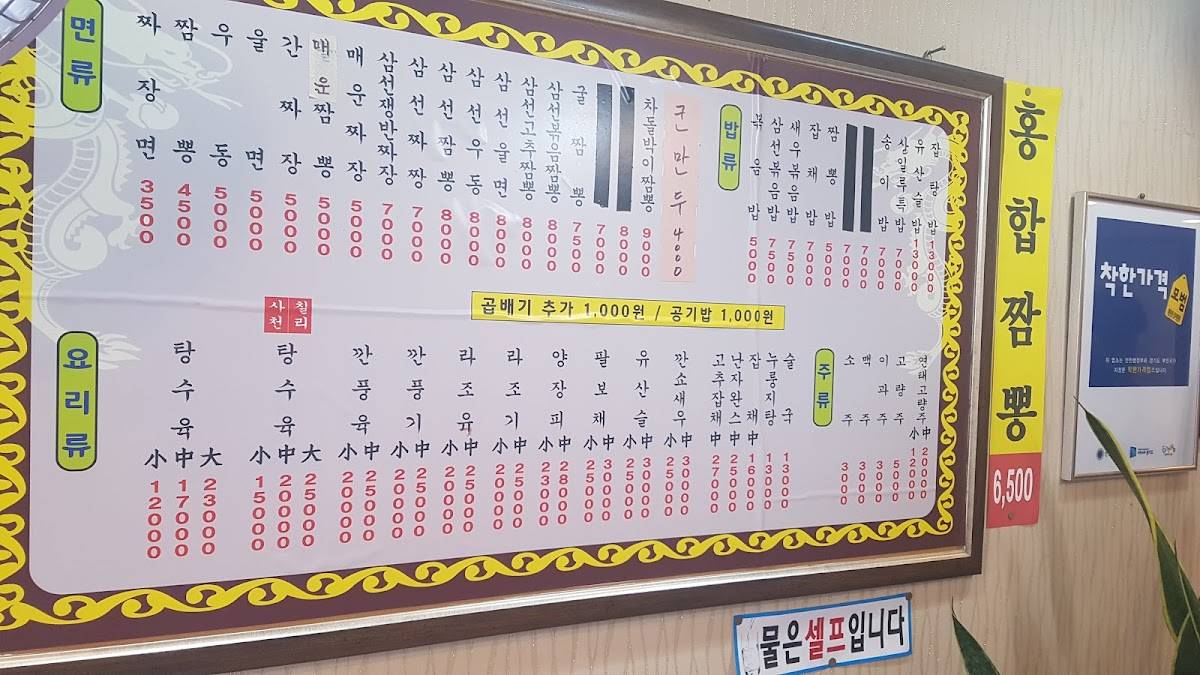 면류
짜장면 3500
짬뽕 4500
우동 5000
울면 5000
간짜장 5000
매운짬뽕 5000
매운짜장 5000
삼선쟁반짜장 7000
삼선짜장 7000
삼선짬뽕 8000
삼선우동 8000
삼선울면 8000
삼선고추짬뽕 8000
삼선볶음짬뽕 8000
굴짬뽕 7500
7000
8000
차돌박이짬뽕 9000
군만두 4000
밥류
볶음밥 5000
삼선볶음밥 7500
새우볶음밥 7500
잡채밥
짬뽕밥 5000
7000
7000
송이밥 7000
삼일루특밥 7000
유산슬밥 13000
잡탕밥 13000
곱배기 추가 1,000원 / 공기밥 1,000원
요리류
탕수육 小 12000 中 17000 大 23000
사천 칠리
탕수육 小 15000 中 20000 大 25000
깐풍육 小 20000 中 25000
깐풍기 小 20000 中 25000
라조육 小 20000 中 25000
라조기 小 20000 中 25000
양장피 小 23000 中 28000
팔보채 小 25000 中 30000
유산슬 小 25000 中 30000
깐쇼새우 小 25000 中 30000
고추잡채 中 27000
난자완스 中 25000
잡채 中 16000
누룽지탕 13000
술국 13000
주류
소주 3000
맥주 3000
이과주 3000
고량주 5000
연태고량주 小 12000 中 20000
홍합짬뽕
6,500
착한가격
모범
물은셀프입니다